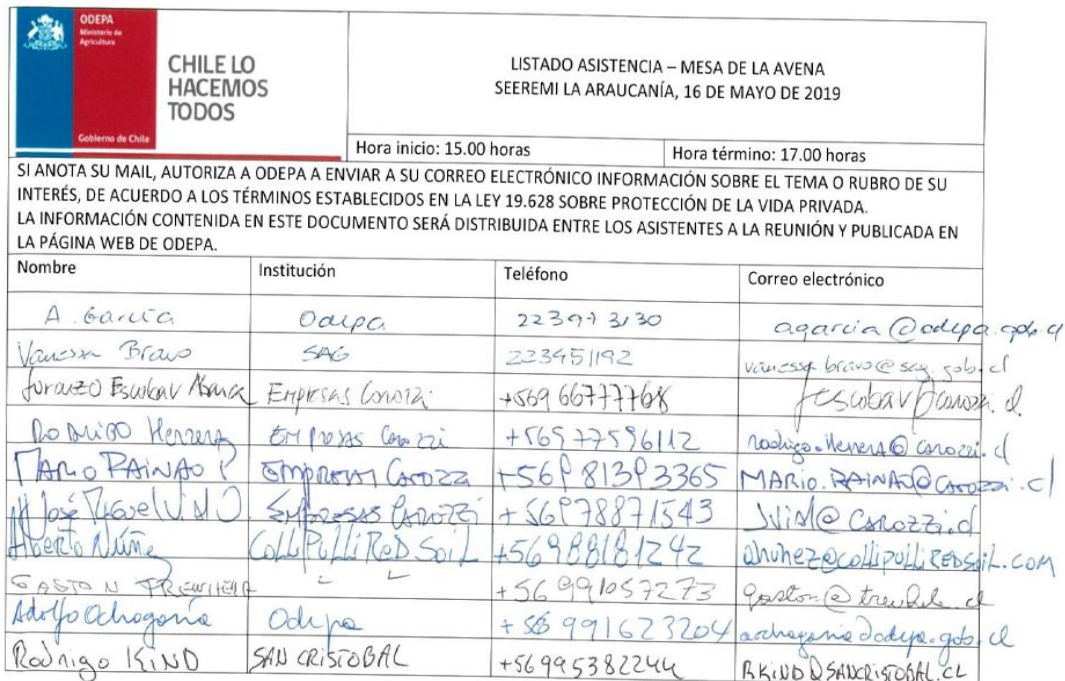 ODEPA
Ministerio de
Agricultura
Gobierno de Chile
CHILE LO
HACEMOS
TODOS
LISTADO ASISTENCIA – MESA DE LA AVENA
SEEREMI LA ARAUCANÍA, 16 DE MAYO DE 2019
Hora inicio: 15.00 horas Hora término: 17.00 horas
SI ANOTA SU MAIL, AUTORIZA A ODEPA A ENVIAR A SU CORREO ELECTRÓNICO INFORMACIÓN SOBRE EL TEMA O RUBRO DE SU
INTERÉS, DE ACUERDO A LOS TÉRMINOS ESTABLECIDOS EN LA LEY 19.628 SOBRE PROTECCIÓN DE LA VIDA PRIVADA.
LA INFORMACIÓN CONTENIDA EN ESTE DOCUMENTO SERÁ DISTRIBUIDA ENTRE LOS ASISTENTES A LA REUNIÓN Y PUBLICADA EN
LA PÁGINA WEB DE ODEPA.
Nombre Institución Teléfono Correo electrónico
A. García Odepa agarcia@odepa.gob.cl
Vanessa Bravo SAG 223451192 vanessa.bravo@sag.gob.cl
Escobar Empresas Carozzi +569 66777768
Rodrigo Herrera Empresas Carozzi +56977596112 rodrigo.herrera@carozzi.cl
MARIO PAINAO P Empresas Carozzi +569 81393365 MARIO.PAINAO@carozzi.cl
José Miguel VIAL EMPRESAS CAROZZI +56978871543 JVial@CAROZZi.cl
Alberto Núñez COLLIPULLI RED SOIL +56988181242 anunez@COLLIPULLIREDSOIL.COM
GASTON +56991057273
Adolfo Ochagavía Odepa +56 991623204 aochagavia@odepa.gob.cl
Rodrigo KIND SAN CRISTOBAL +56995382244 RKIND@SANCRISTOBAL.CL